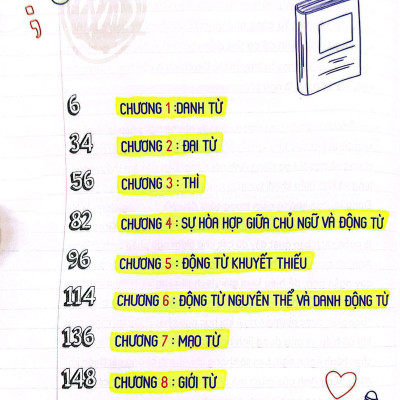 6 CHƯƠNG 1 :DANH TỪ
34 CHƯƠNG 2 : ĐẠI TỪ
56 CHƯƠNG 3 : THÌ
82 CHƯƠNG 4 : SỰ HÒA HỢP GIỮA CHỦ NGỮ VÀ ĐỘNG TỪ
96 CHƯƠNG 5 : ĐỘNG TỪ KHUYẾT THIẾU
114 CHƯƠNG 6 : ĐỘNG TỪ NGUYÊN THỂ VÀ DANH ĐỘNG TỪ
136 CHƯƠNG 7 : MẠO TỪ
148 CHƯƠNG 8 : GIỚI TỪ